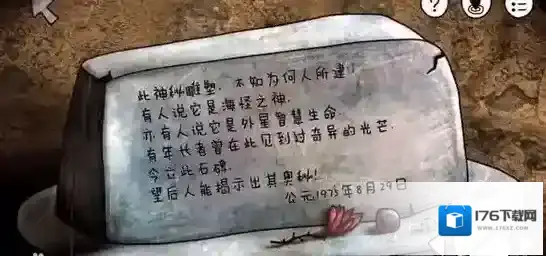 ?
此神秘雕塑，不知为何人所建！
有人说它是海怪之神．
亦有人说它是外星智慧生命．
有年长者曾在此见到过奇异的光芒．
今立此石碑．
望后人能揭示出其奥秘！
公元1975年8月29日
176下载网